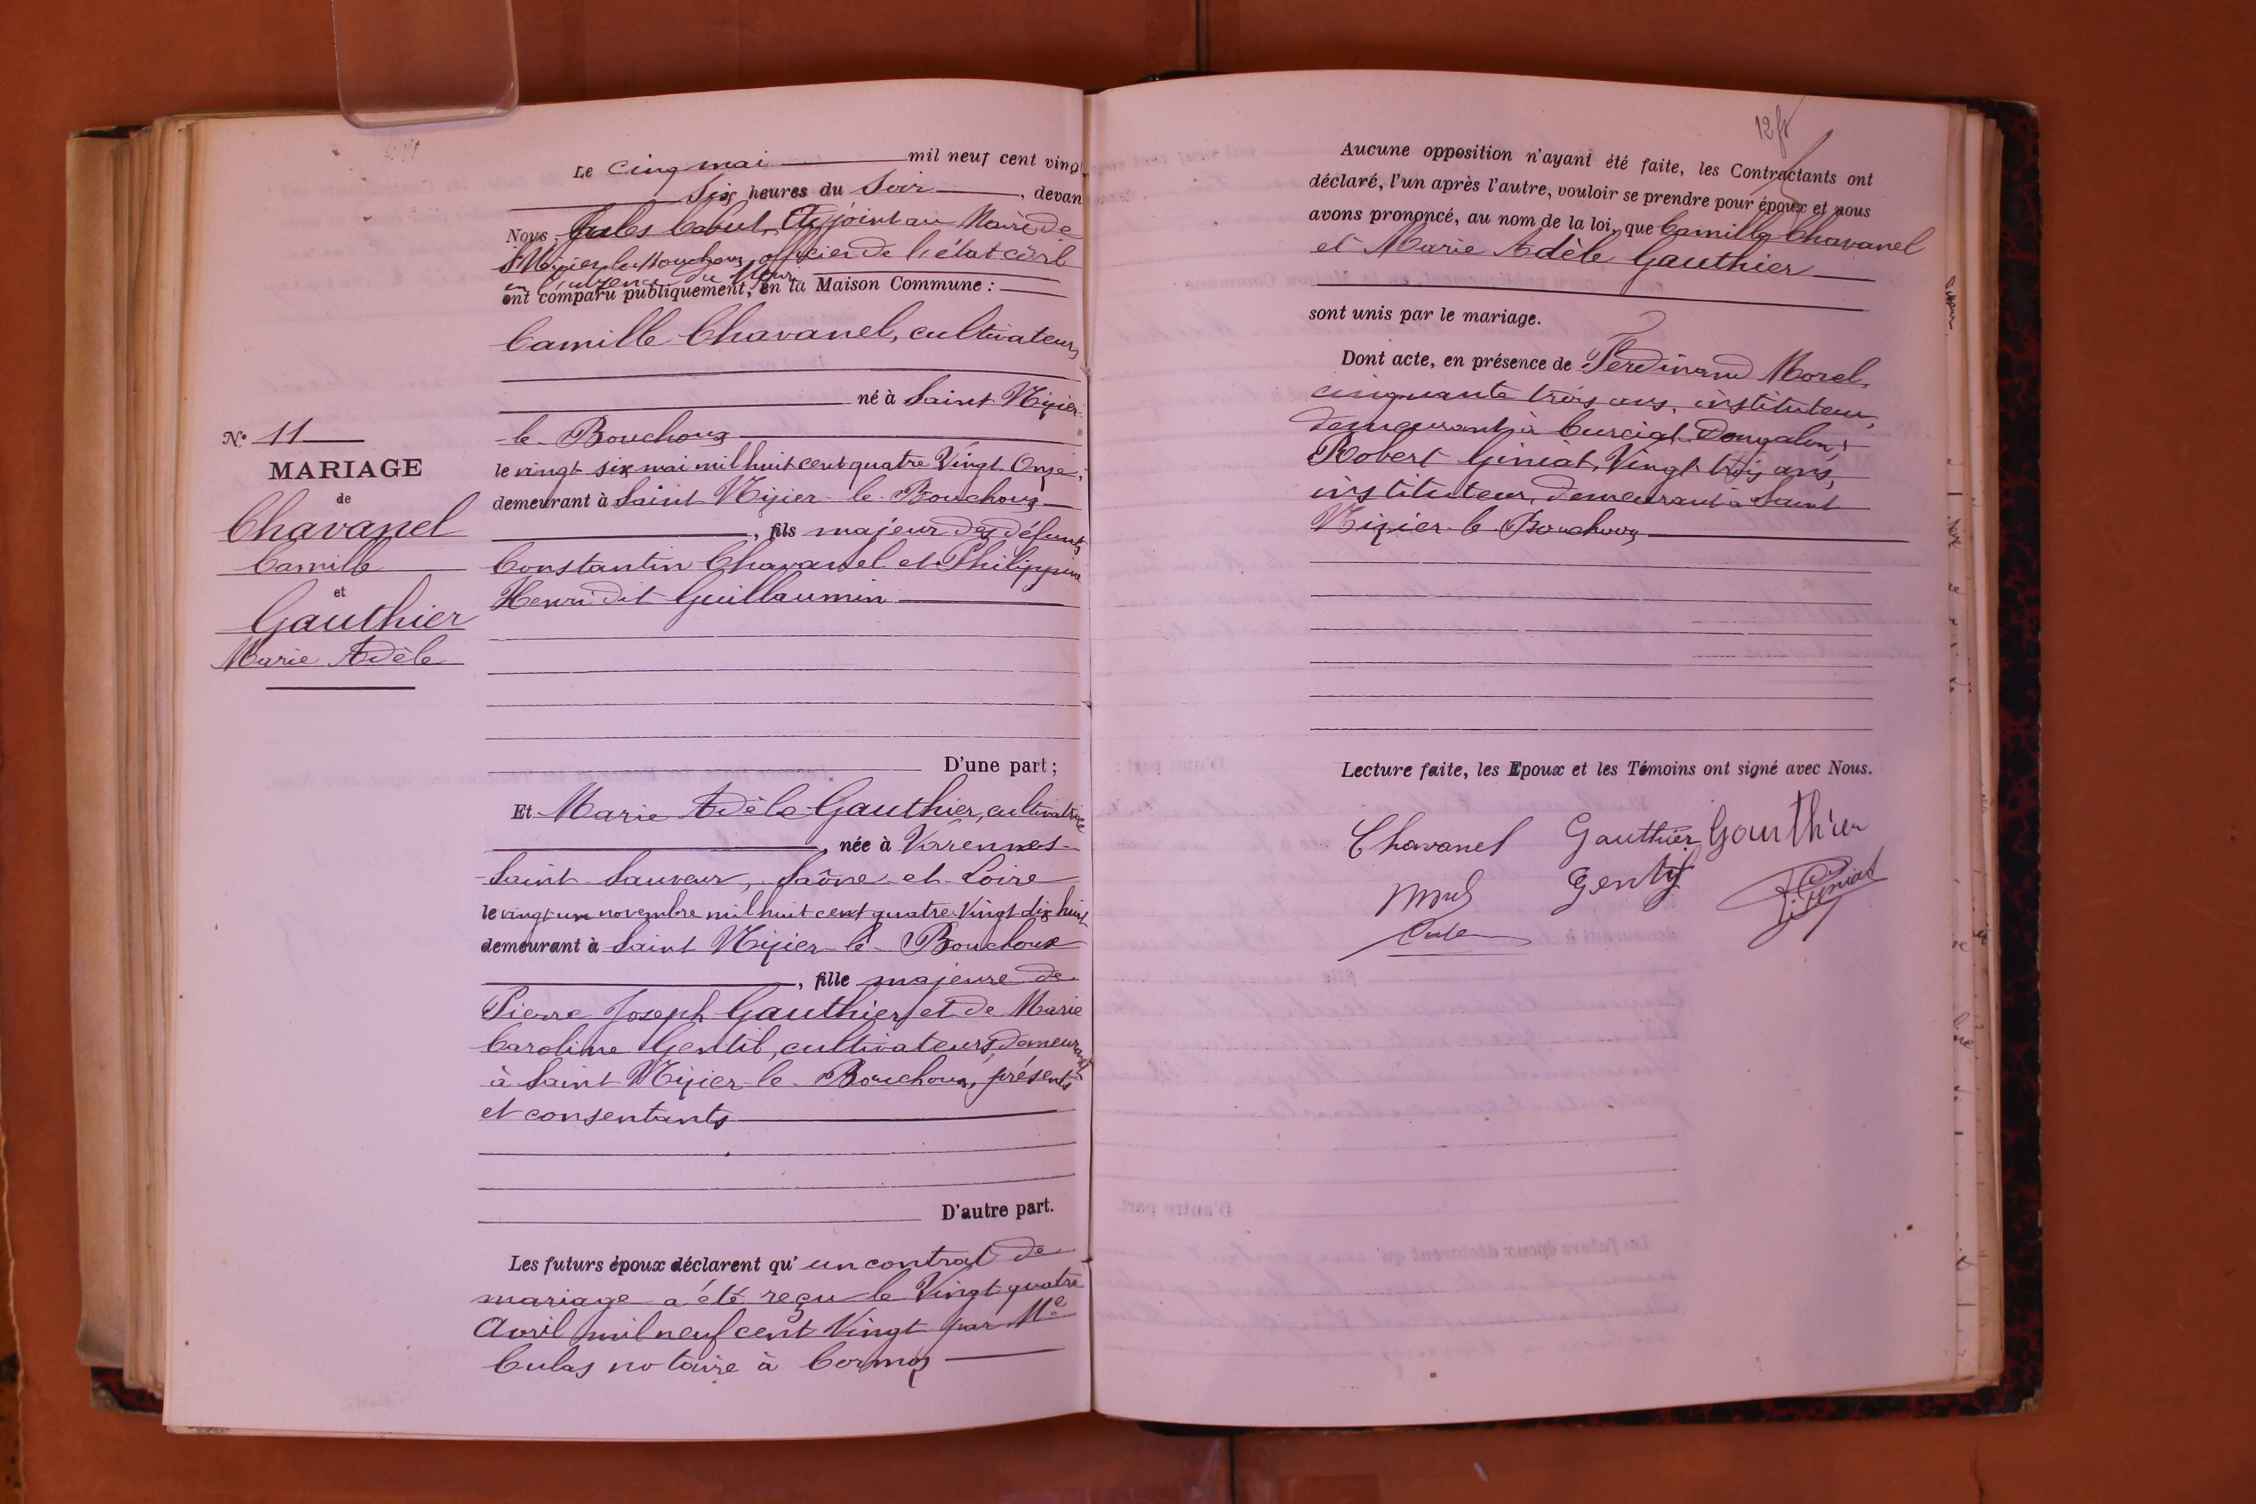 Le cinq mai mil neuf cent vingt
Six heures du Soir, devan
Nous, Jules Cabut, Adjoint au Maire de
St Nizier le Bouchoux officier de l'état civil
en l'absence du Maire
ont comparu publiquement, en la Maison Commune :
Camille Chavanel, cultivateur,
né à Saint Nizier
le Bouchoux
le vingt six mai mil huit cent quatre Vingt Onze,
demeurant à Saint Nizier le Bouchoux
, fils majeur des défunts
Constantin Chavanel et Philippine
Henri dit Guillaumin
D'une part ;
N° 11
MARIAGE
de
Chavanel
Camille
et
Gauthier
Marie Adèle
Et Marie Adèle Gauthier, cultivatrice
, née à Varennes
Saint Sauveur, Saône et Loire
le vingt un novembre mil huit cent quatre Vingt dix huit
demeurant à Saint Nizier le Bouchoux
, fille majeure de
Pierre Joseph Gauthier et de Marie
Caroline Gentil, cultivateurs, demeurant
à Saint Nizier le Bouchoux, présents
et consentants
D'autre part.
Les futurs époux déclarent qu'un contrat de
mariage a été reçu le Vingt quatre
Avril mil neuf cent Vingt par Me
Culas notaire à Cormoz
12 fs
Aucune opposition n'ayant été faite, les Contractants ont
déclaré, l'un après l'autre, vouloir se prendre pour époux et nous
avons prononcé, au nom de la loi, que Camille Chavanel
et Marie Adèle Gauthier
sont unis par le mariage.
Dont acte, en présence de Ferdinand Morel,
cinquante trois ans, instituteur,
demeurant à Curciat Dongalon,
Robert Giniat, Vingt trois ans,
instituteur, demeurant à Saint
Nizier le Bouchoux
Lecture faite, les Epoux et les Témoins ont signé avec Nous.
Chavanel Gauthier Gauthier
Morel Gentil Giniat